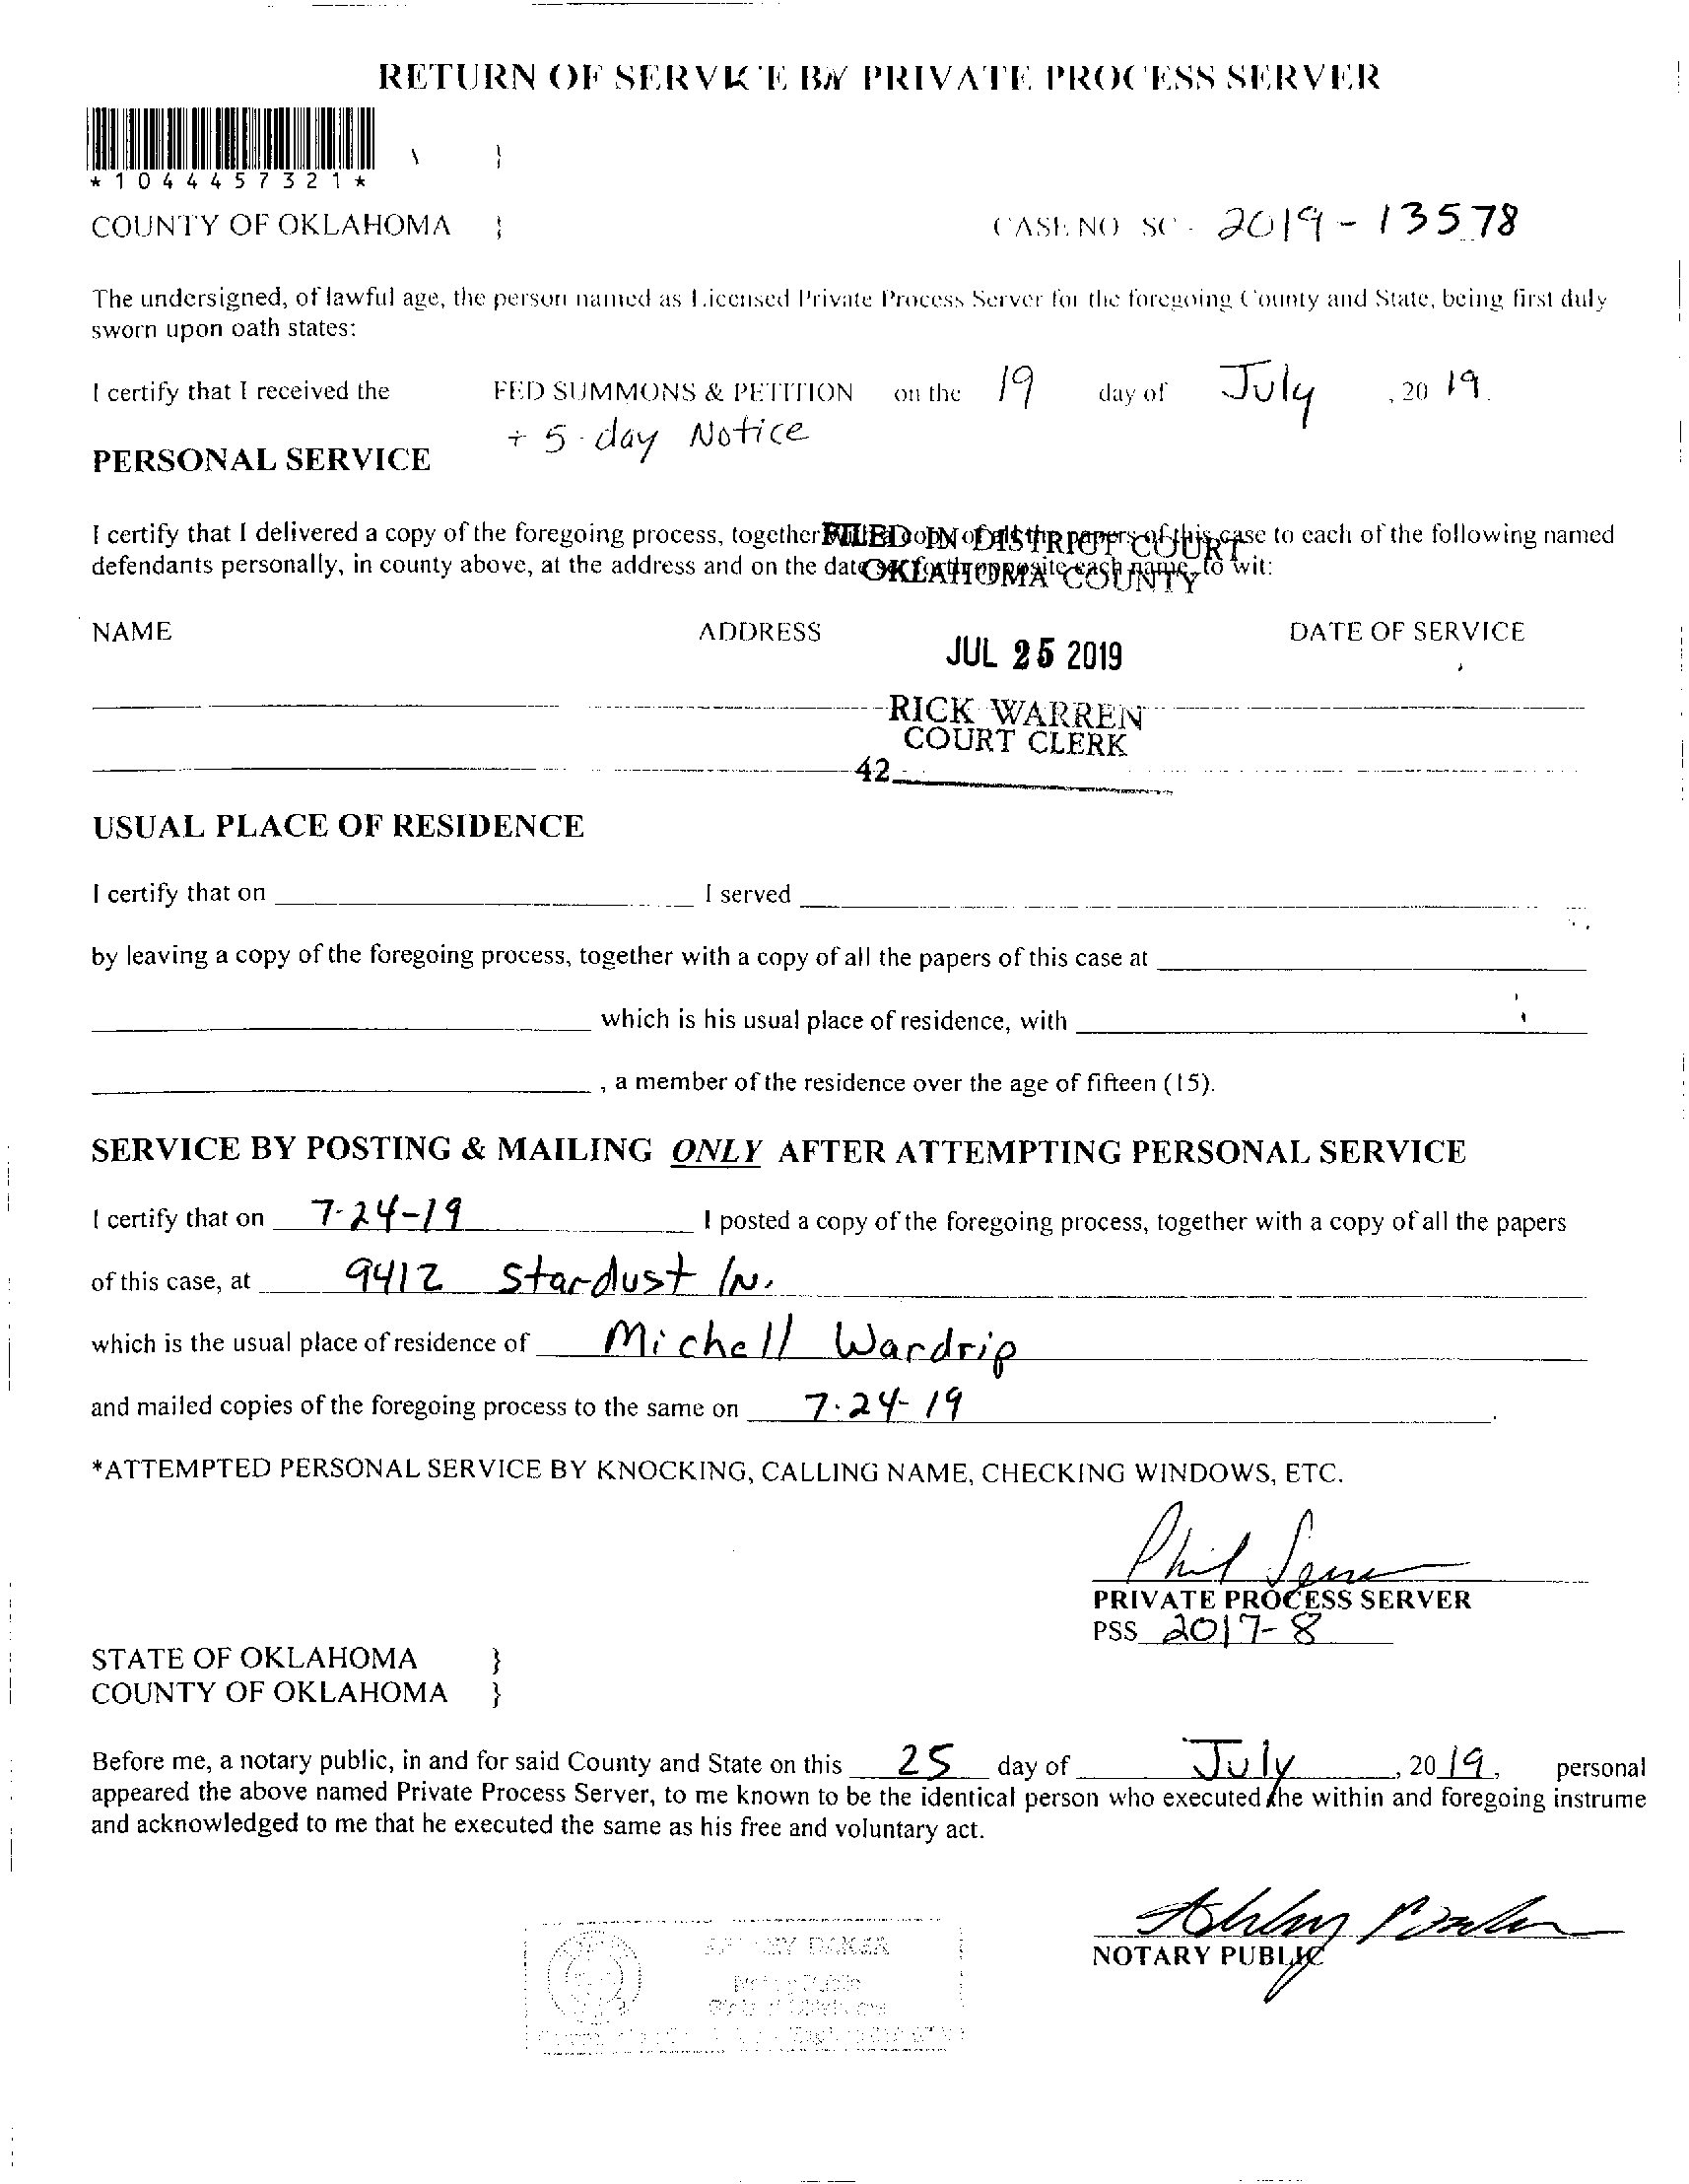 RETURN OF SERVICE BY PRIVATE PROCESS SERVER
* 1 0 4 4 4 5 7 3 2 1 *
COUNTY OF OKLAHOMA } CASE NO SC - 2019 - 13578
The undersigned, of lawful age, the person named as Licensed Private Process Server for the foregoing County and State, being first duly
sworn upon oath states:
I certify that I received the FED SUMMONS & PETITION on the 19 day of July , 20 19.
+ 5-day Notice
PERSONAL SERVICE
I certify that I delivered a copy of the foregoing process, together with a copy of all the papers of this case to each of the following named
defendants personally, in county above, at the address and on the date set forth opposite each name, to wit:
FILED IN DISTRICT COURT
OKLAHOMA COUNTY
NAME ADDRESS DATE OF SERVICE
JUL 25 2019
RICK WARREN
COURT CLERK
42
USUAL PLACE OF RESIDENCE
I certify that on I served
by leaving a copy of the foregoing process, together with a copy of all the papers of this case at
which is his usual place of residence, with
, a member of the residence over the age of fifteen (15).
SERVICE BY POSTING & MAILING ONLY AFTER ATTEMPTING PERSONAL SERVICE
I certify that on 7-24-19 I posted a copy of the foregoing process, together with a copy of all the papers
of this case, at 9412 Stardust ln.
which is the usual place of residence of Michell Wardrip
and mailed copies of the foregoing process to the same on 7-24-19 .
*ATTEMPTED PERSONAL SERVICE BY KNOCKING, CALLING NAME, CHECKING WINDOWS, ETC.
Phil
PRIVATE PROCESS SERVER
PSS 2017-8
STATE OF OKLAHOMA }
COUNTY OF OKLAHOMA }
Before me, a notary public, in and for said County and State on this 25 day of July , 20 19, personal
appeared the above named Private Process Server, to me known to be the identical person who executed the within and foregoing instrume
and acknowledged to me that he executed the same as his free and voluntary act.
NOTARY PUBLIC
Notary Public